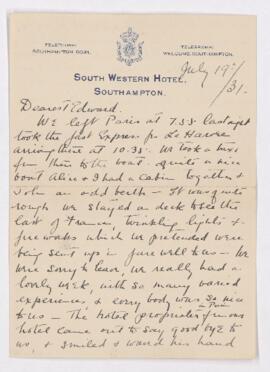 TELEPHONE
SOUTHAMPTON
TELEGRAMS
WELCOME, SOUTHAMPTON.
SOUTH WESTERN HOTEL,
SOUTHAMPTON.
July 19th
/31.
Dearest Edward.
We left Paris at 7.55 last night
took the fast Express for Le Havre
arriving there at 10.35. We took a taxi
from there to the boat. quite a nice
boat Alice & I had a cabin together &
John an odd berth - It was quite
rough we stayed on deck to see the
last of France, twinkling lights &
fire works which we pretended were
being sent up in farewell to us - We
were sorry to leave, we really had a
lovely week, with so many varied
experiences, & every body was so nice
in Paris
to us - The hotel proprietor of our
hotel came out to say good bye to
us, & smiled & waved his hand